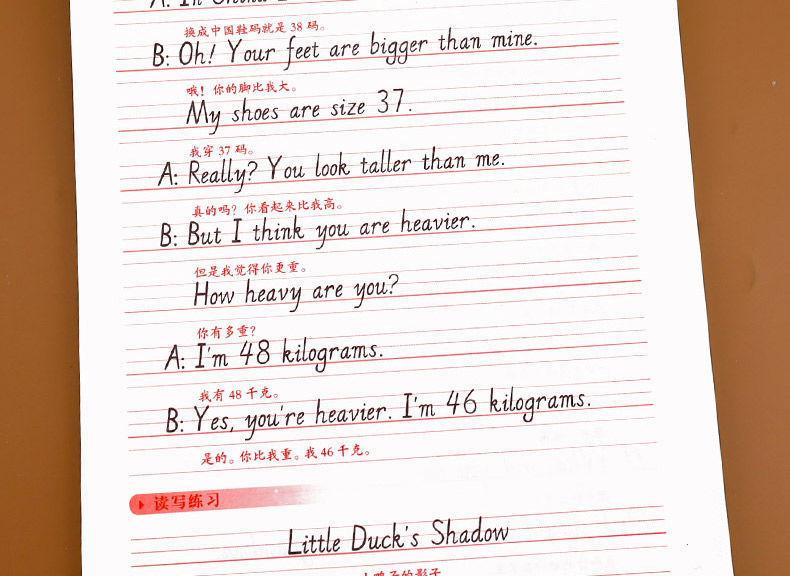 A: In China
换成中国鞋码就是 38 码。
B: Oh! Your feet are bigger than mine.
哦！你的脚比我大。
My shoes are size 37.
我穿 37 码。
A: Really? You look taller than me.
真的吗？你看起来比我高。
B: But I think you are heavier.
但是我觉得你更重。
How heavy are you?
你有多重？
A: I'm 48 kilograms.
我有 48 千克。
B: Yes, you're heavier. I'm 46 kilograms.
是的。你比我重。我 46 千克。
读写练习
Little Duck's Shadow
小鸭子的影子